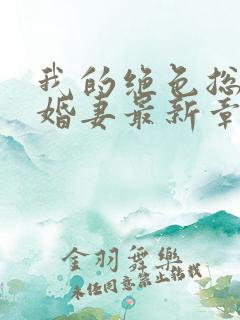 我的绝色总
婚妻最新章
金羽舞乐
未经同意禁止转载